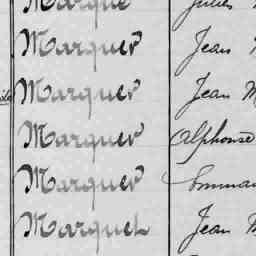 Marque Jules
Marquer Jean
Marquer Jean M
Marquer Alphonse
Marquer Emman
Marquet Jean M